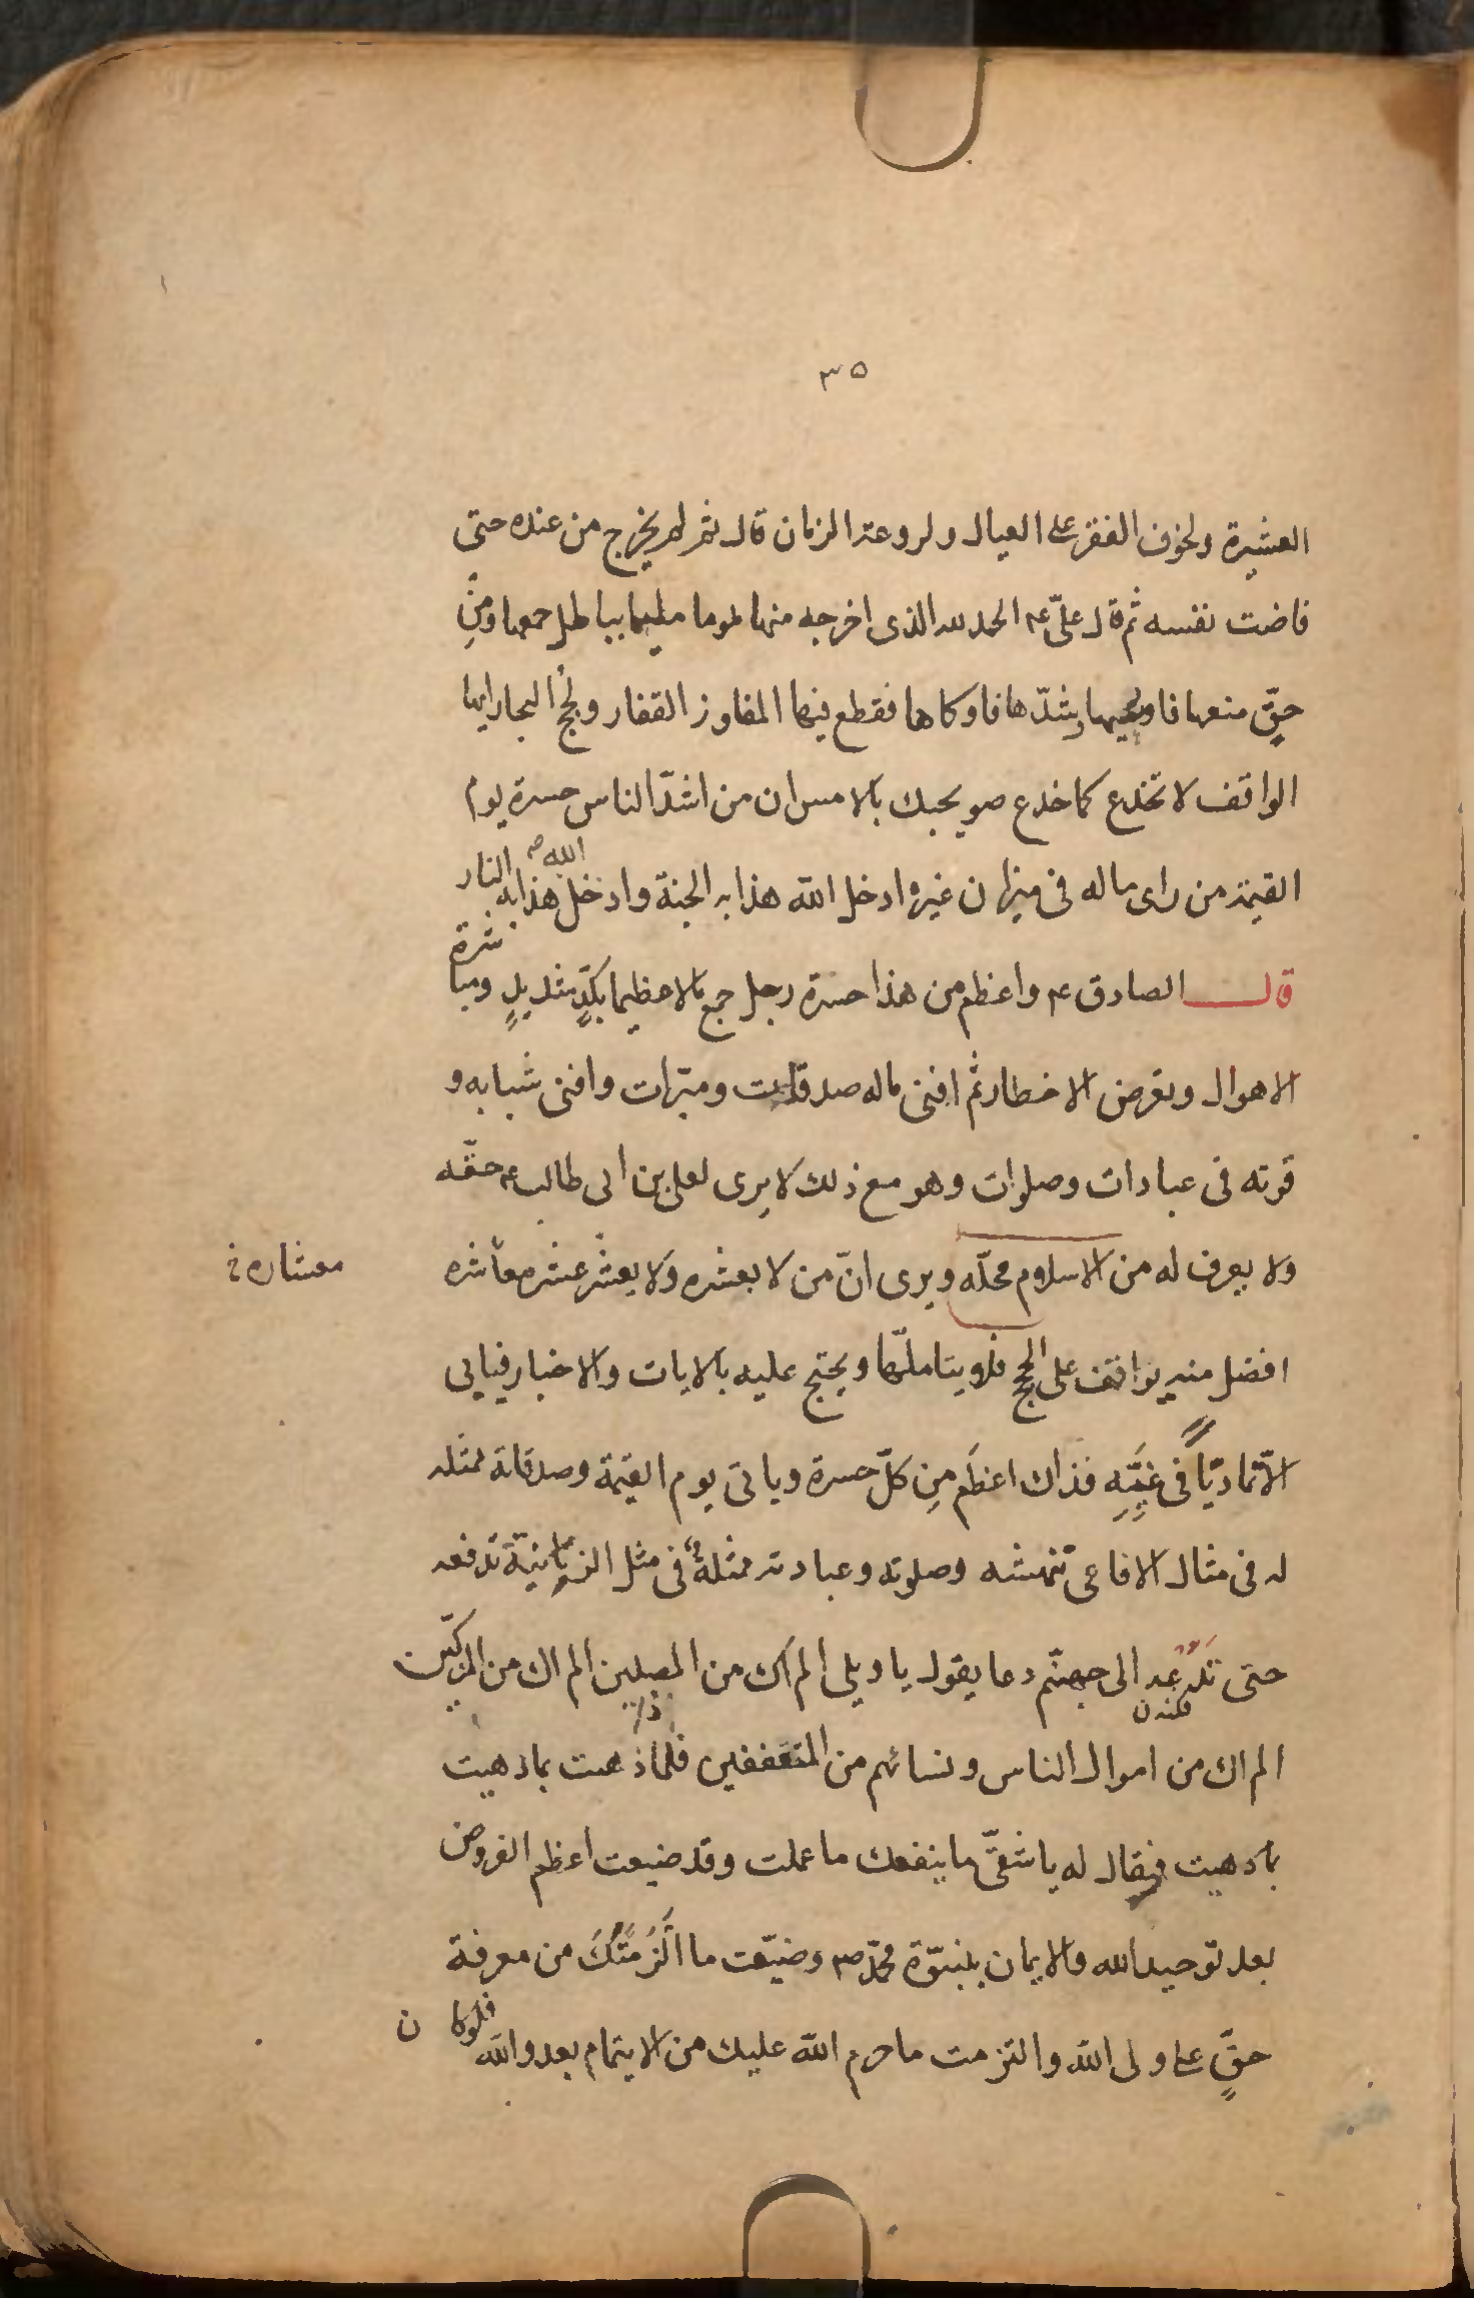 ٣٥
العشيرة ولخوف الفقر على العيال ولروعة الزمان قال ثم لم يخرج من عنده حتى
فاضت نفسه ثم قال علىّ ع‍ الحمد لله الذى اخرجه منها ملوما مليما بباطل جمعها ومِن
حقٍّ منعها فاوعيها وشدّها فاوكاها فقطع فيها المفاوز القفار ولُجج البحار ايها
الواقف لا تخدع كما خدع صويحبك بالامس ان من اشدّ الناس حسرة يوم
القيمة من راى ماله فى ميزان غيره ادخل الله هذا به الجنة وادخل الله هذا به النار
قال الصادق ع‍ واعظم من هذا حسرة رجل جمع مالا عظيما بكدٍّ شديدٍ ومباشرة
الاهوال وتعرض الاخطار ثم افنى ماله صدقات ومبرّات وافنى شبابه و
قوته فى عبادات وصلوات وهو مع ذلك لا يرى لعلى بن ابى طالب ع‍ حقّه
ولا يعرف له من الاسلام محلّه ويرى انّ من لا بعشره ولا بعشر عشر معاشره
معشاره
افضل منه يواقف على الحجج فلا يتاملّها ويحتج عليه بالايات والاخبار فيابى
الّا تماديًا فى غيِّه فذاك اعظَم مِن كلّ حسرة وياتى يوم القيمة وصدقاته ممثله
له فى مثال الافاعى تنهشه وصلوته وعبادته ممثلةٌ فى مثل الزبانية تدفعه
حتى تَدُعّه الى جهنّم دعا يقول يا ويلى الم اك من المصلين الم اك من المزكّين
الم اك من اموال الناس ونسائهم من المتعَففين فلماذا دهيت بما دهيت
بما دهيت فيقال له يا شقىّ ما ينفعك ما عملت وقد ضيعت اعظم الفروض
بعد توحيد الله والايمان بنبوّة محمّد ص‍ وضيّعت ما الَزَمتُكَ من معرفة
حقٍّ على ولى الله والتزمت ما حرم الله عليك من الايتمام بعدو الله فلو كان